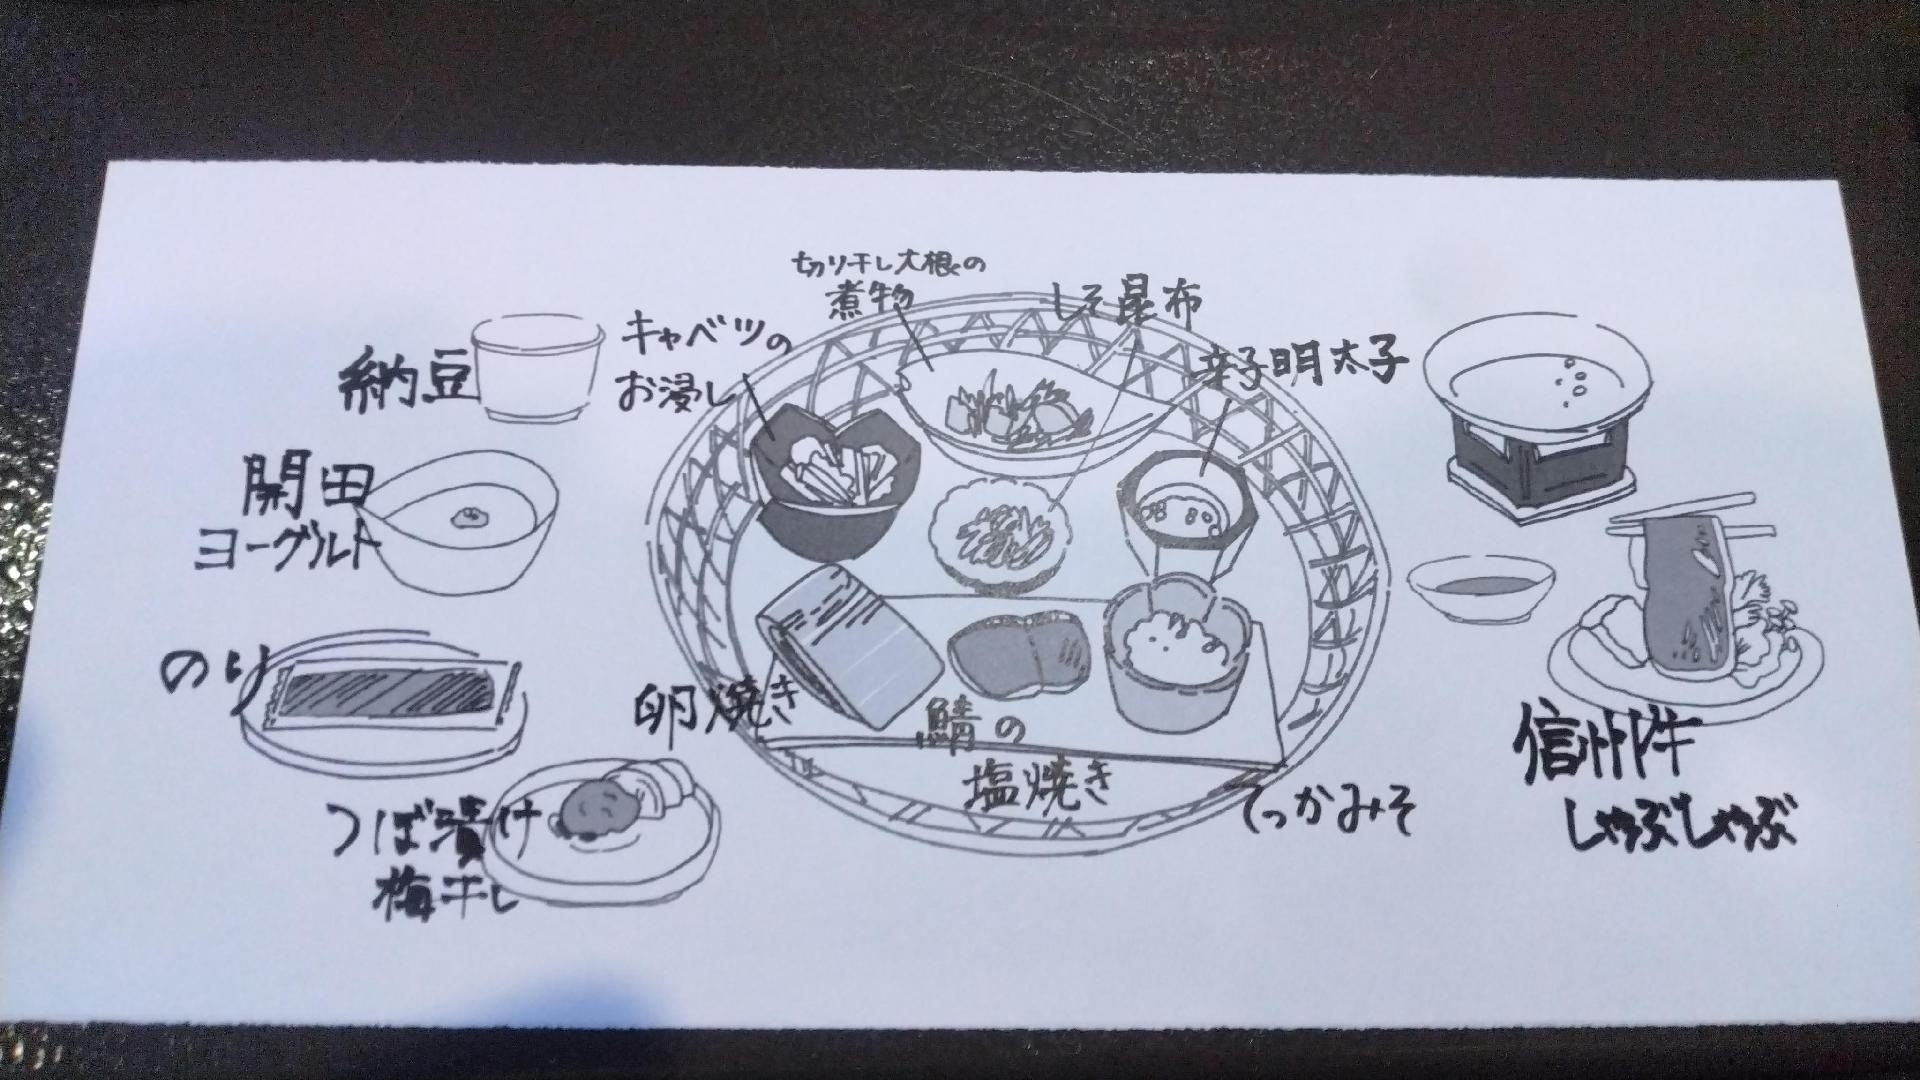 納豆
開田
ヨーグルト
のり
つぼ漬け
梅干し
キャベツの
お浸し
切り干し大根の
煮物
しそ昆布
辛子明太子
卵焼き
鯖の
塩焼き
てっかみそ
信州牛
しゃぶしゃぶ